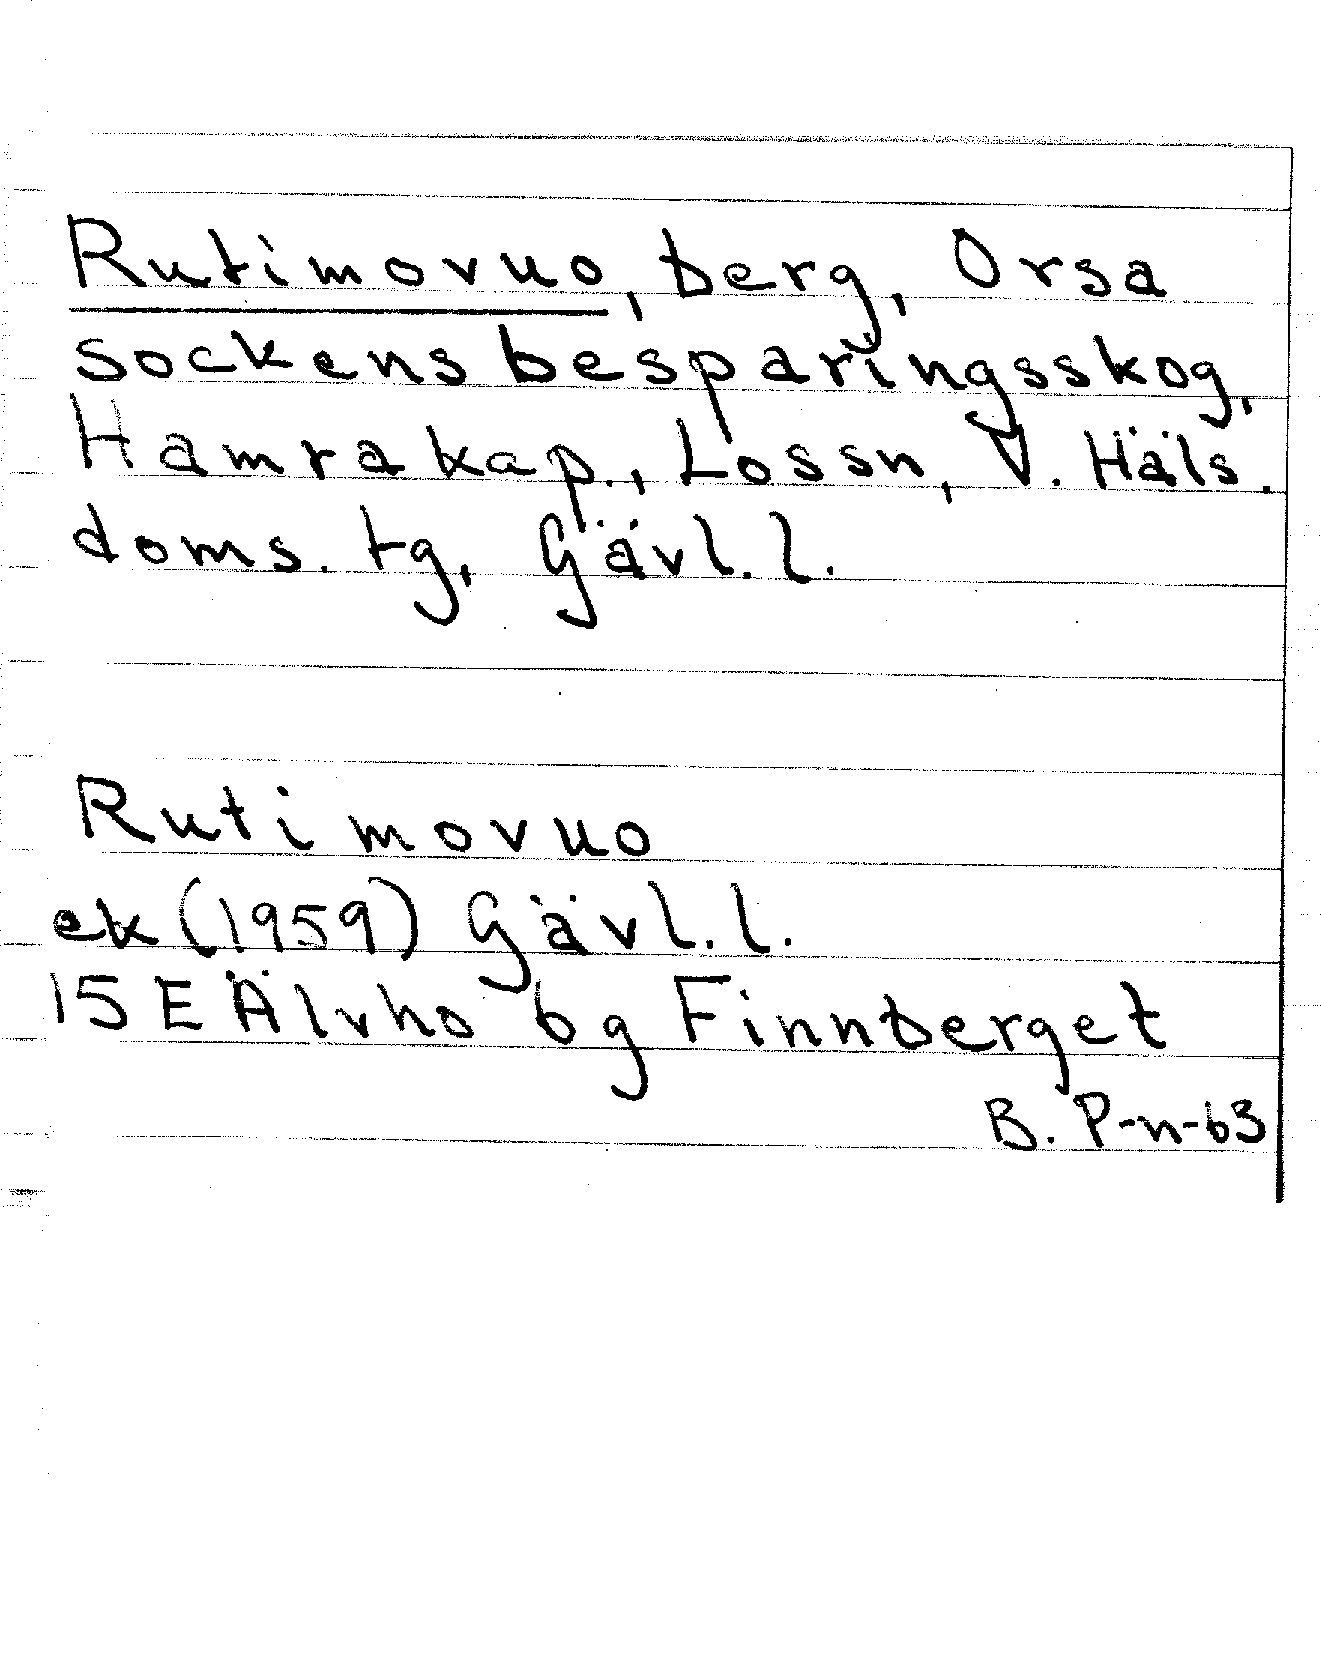 Rutimovuo, berg, Orsa
sockens besparingsskog,
Hamra kap., Lossn, V. Häls.
doms. tg, Gävl. l.
Rutimovuo
ek (1959) Gävl. l.
15 E Älvho bg Finnberget
B. P-n-63